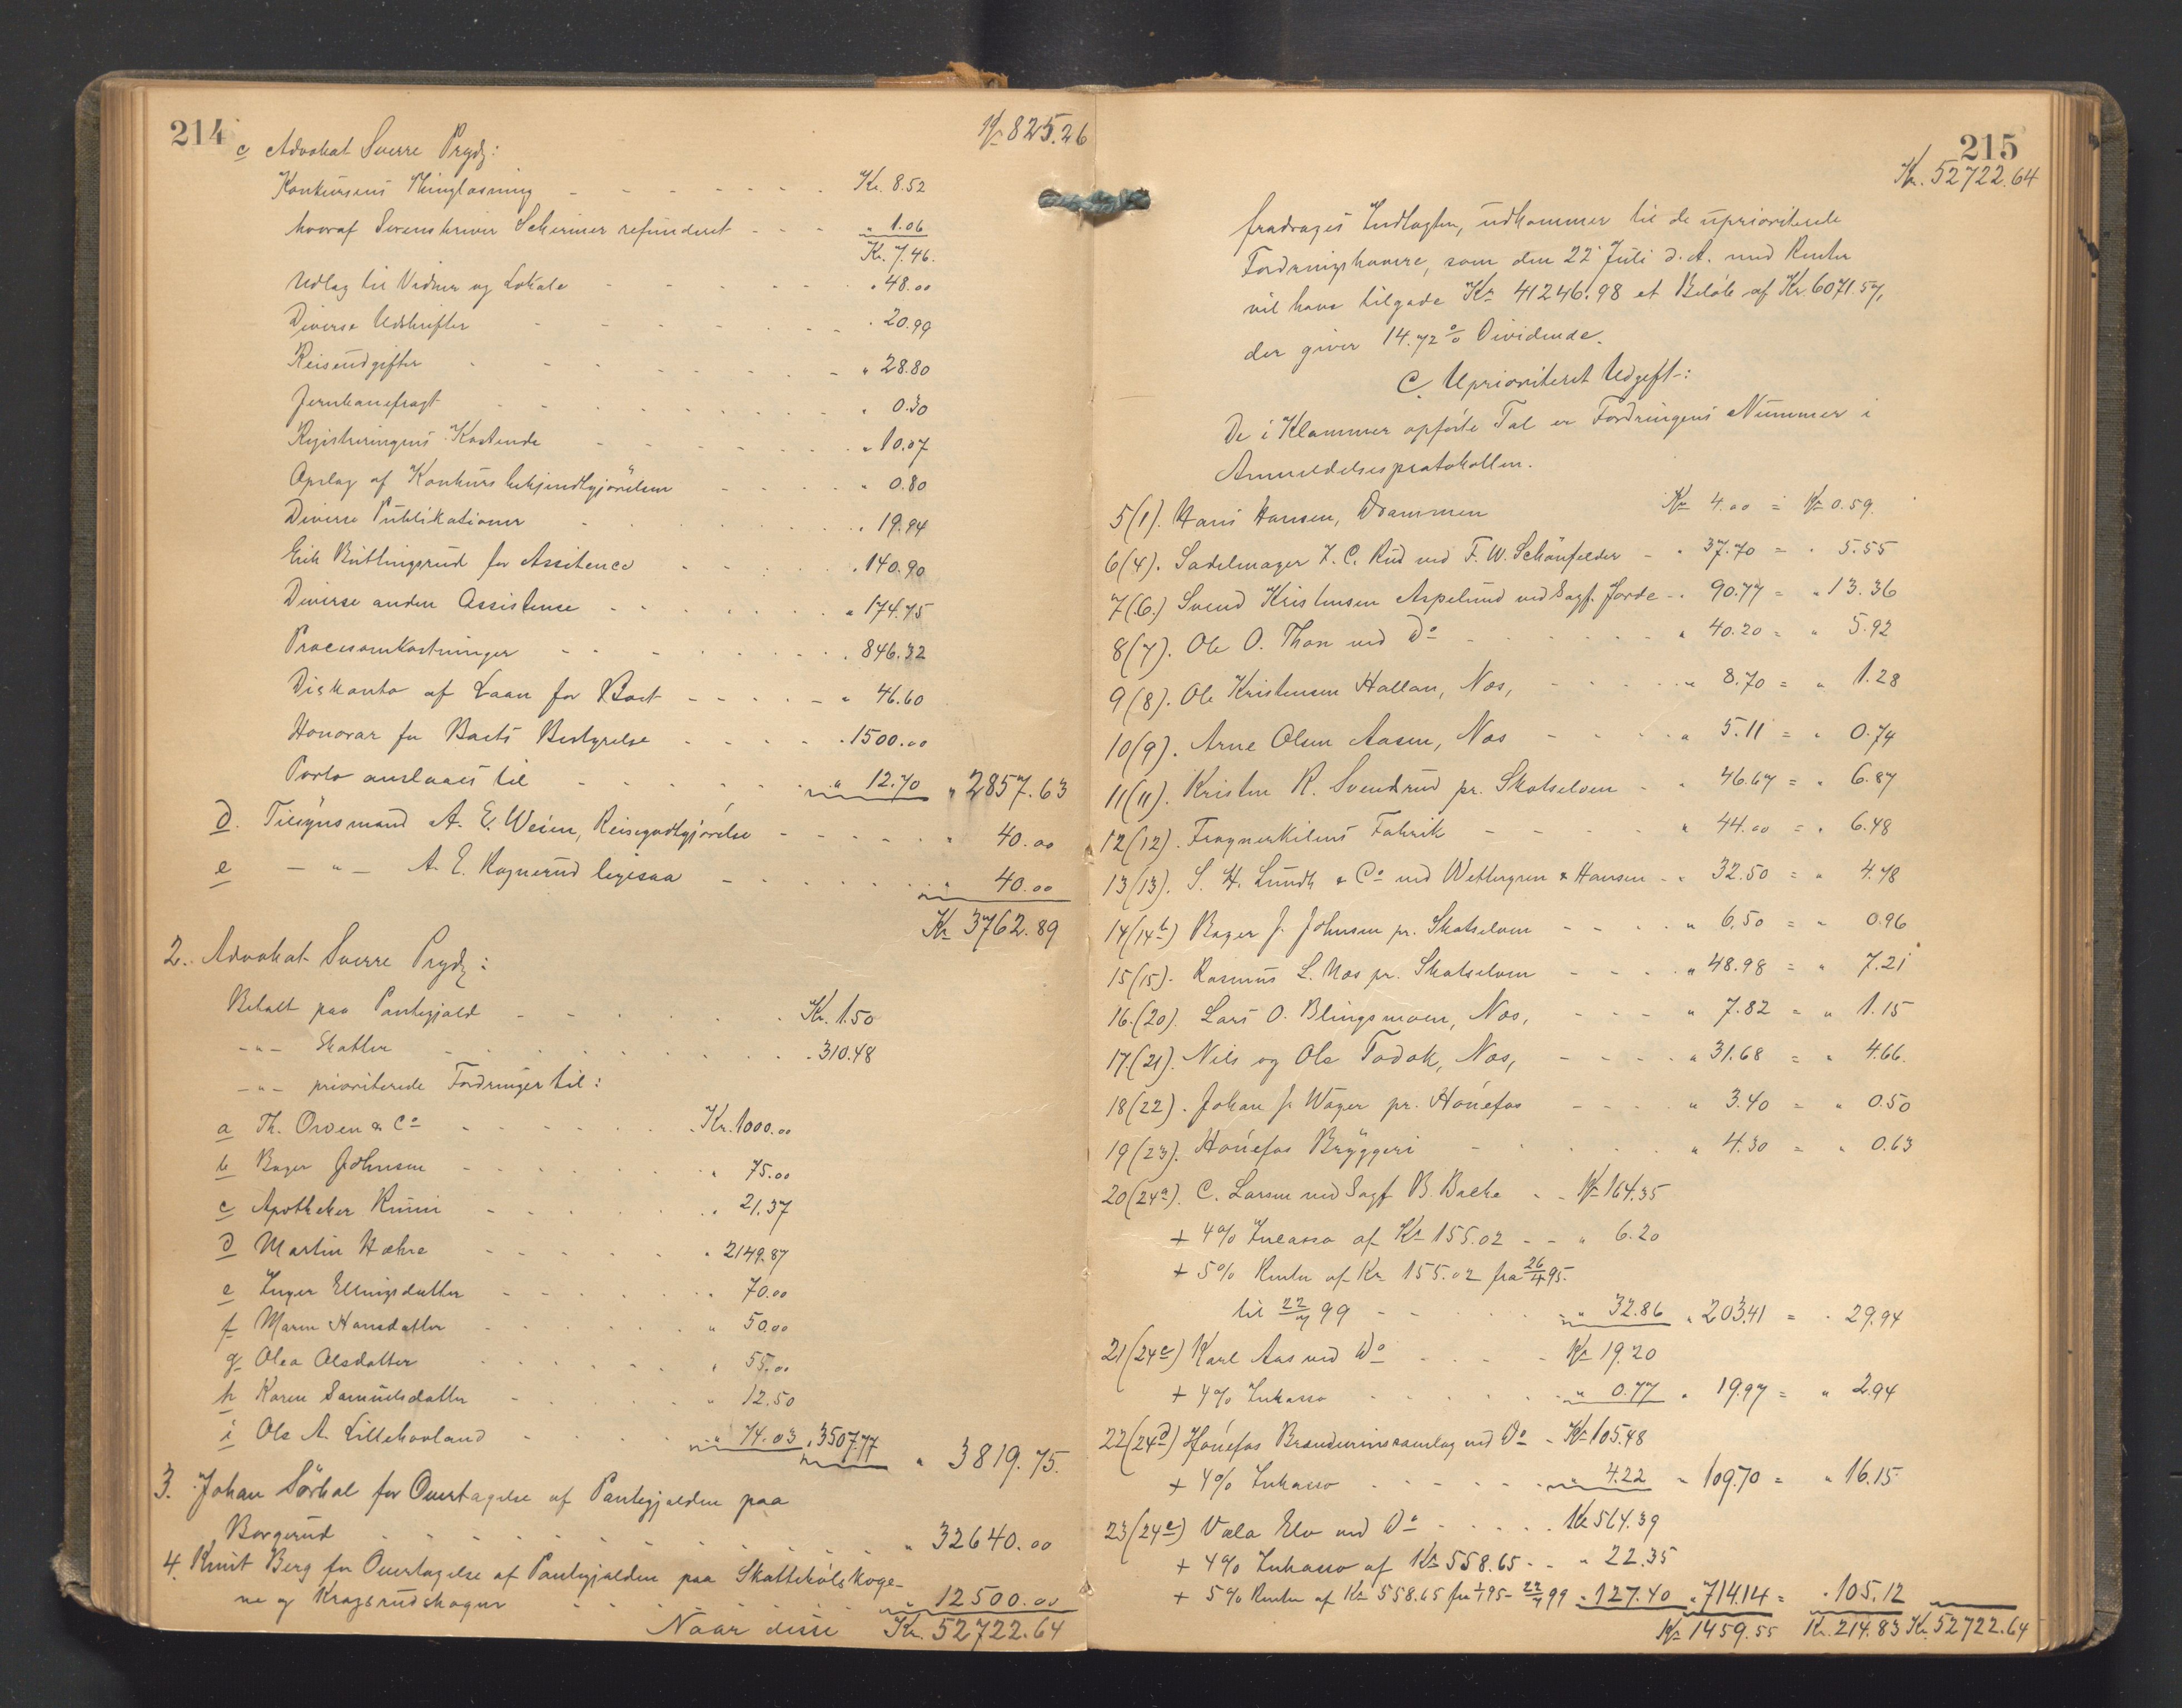 214
Kr 825.26
c Advokat Sverre Prydz:
Konkursens Thinglæsning - - - - - - Kr. 8.52
hvoraf Sorenskriver Scheimer refunderet - - - " 1.06
Kr. 7.46.
Udlæg til Vidner og Lokale - - - - - - " 48.00
Diverse Udskrifter - - - - - - " 20.99
Reiseudgifter - - - - - - " 28.80
Jernbanefragt - - - - - - " 0.30
Registreringens Kostende - - - - - - " 10.07
Opslag af Konkursbekjendtgjørelsen - - - - " 0.80
Diverse Publikationer - - - - - " 19.94
Erik Buttingsrud for Assitence - - - - " 140.90
Diverse anden Assistense - - - - - " 174.75
Procesomkostninger - - - - - - " 846.32
Diskonto af Laan for Boet - - - - - " 46.60
Honorar for Boets Bestyrelse - - - - " 1500.00
Porto anslaaes til - - - - - " 12.70 " 2857.63
d. Tilsynsmand A. E. Weien, Reisegodtgjørelse - - - - - " 40.00
e - " - A. E. Ragnerud ligesaa - - - - - - " 40.00
Kr 3762.89
2. Advokat Sverre Prydz:
Betalt paa Pantegjæld - - - - - - Kr. 1.50
- " - Skatter - - - - - - - " 310.48
- " - prioriterede Fordringer til:
a Th. Owen & Co - - - - - - Kr. 1000.00
b Bager Johnsen - - - - - - " 75.00
c Apotheker Riuni - - - - - " 21.37
d Martin Hæhre - - - - - " 2149.87
e Inger Ellingsdatter - - - - - " 70.00
f Maren Hansdatter - - - - - " 50.00
g Olea Olsdatter - - - - - " 55.00
h Karen Samuelsdatter - - - - - " 12.50
i Ole A. Lillehovland - - - - " 74.03 " 3507.77 " 3819.75.
3. Johan Sørbøl for Overtagelse af Pantegjælden paa
Borgerud - - - - - - - - - " 32640.00
4. Knut Berg for Overtagelse af Pantegjælden paa Skattebølskoge-
ne og Kragsrudskogen - - - - - - - " 12500.00
Naar disse Kr. 52722.64
215
Kr. 52722.64
fradrages Indtægten, udkommer til de uprioriterede
Fordringshavere, som den 22 Juli d. A. med Renter
vil have tilgode Kr 41246.98 et Beløb af Kr. 6071.57,
der giver 14.72 % Dividende.
C. Uprioriteret Udgift:
De i Klammer opførte Tal er Fordringens Nummer i
Anmeldelsesprotokollen.
5(1). Hans Hansen, Drammen Kr 4.00 = Kr 0.59.
6(4). Sadelmager J. C. Rud ved F. W. Schönfelder - " 37.70 = " 5.55
7(6.) Svend Kristensen Aspelund ved Sagf. Jorde - " 90.77 = " 13.36
8(7). Ole O. Thon ved Do - - - - - - " 40.20 = " 5.92
9(8). Ole Kristensen Hallan, Næs, - - - - - " 8.70 = " 1.28
10(9). Arne Olsen Aasen, Næs - - - - " 5.11 = " 0.74
11(11). Kristen R. Svendsrud pr. Skotselven - " 46.67 = " 6.87
12(12). Frognerkilens Fabrik - - - - " 44.00 = " 6.48
13(13). S. H. Lundh & Co ved Wettergren & Hansen - " 32.50 = " 4.78
14(14b) Bager J. Johnsen pr. Skotselven - - - - " 6.50 = " 0.96
15(15). Rasmus L. Næs pr. Skotselven - - - - " 48.98 = " 7.21
16.(20). Lars O. Blingsmoen, Næs, - - - " 7.82 = " 1.15
17.(21). Nils og Ole Todok, Næs, - - - - " 31.68 = " 4.66.
18(22). Johan J. Wager pr. Hønefos - - - - " 3.40 = " 0.50
19(23). Hønefos Bryggeri - - - - - " 4.30 = " 0.63
20(24a). C. Larsen ved Sagf B. Bache - - Kr 164.35
+ 4% Incasso af Kr 155.02 - - " 6.20
+ 5% Renter af Kr 155.02 fra 26/4 95.
til 22/7 99 - - - - - " 32.86 " 203.41 = " 29.94
21(24c) Karl Aas ved Do - - - - Kr 19.20
+ 4% Inkasso - - - - - - " 0.77 " 19.97 = " 2.94
22(24d) Hønefos Brændevinssamlag ved Do - Kr 105.48
+ 4% Inkasso - - - - - - " 4.22 " 109.70 = " 16.15.
23(24e) Væla Elv ved Do - - - - - Kr 564.39
+ 4% Inkasso af Kr 558.65 - - " 22.35
+ 5% Renter af Kr 558.65 fra 1/1 95 - 22/7 99 " 127.40 " 714.14 = " 105.12
Kr 1459.55 Kr. 214.83 Kr. 52722.64